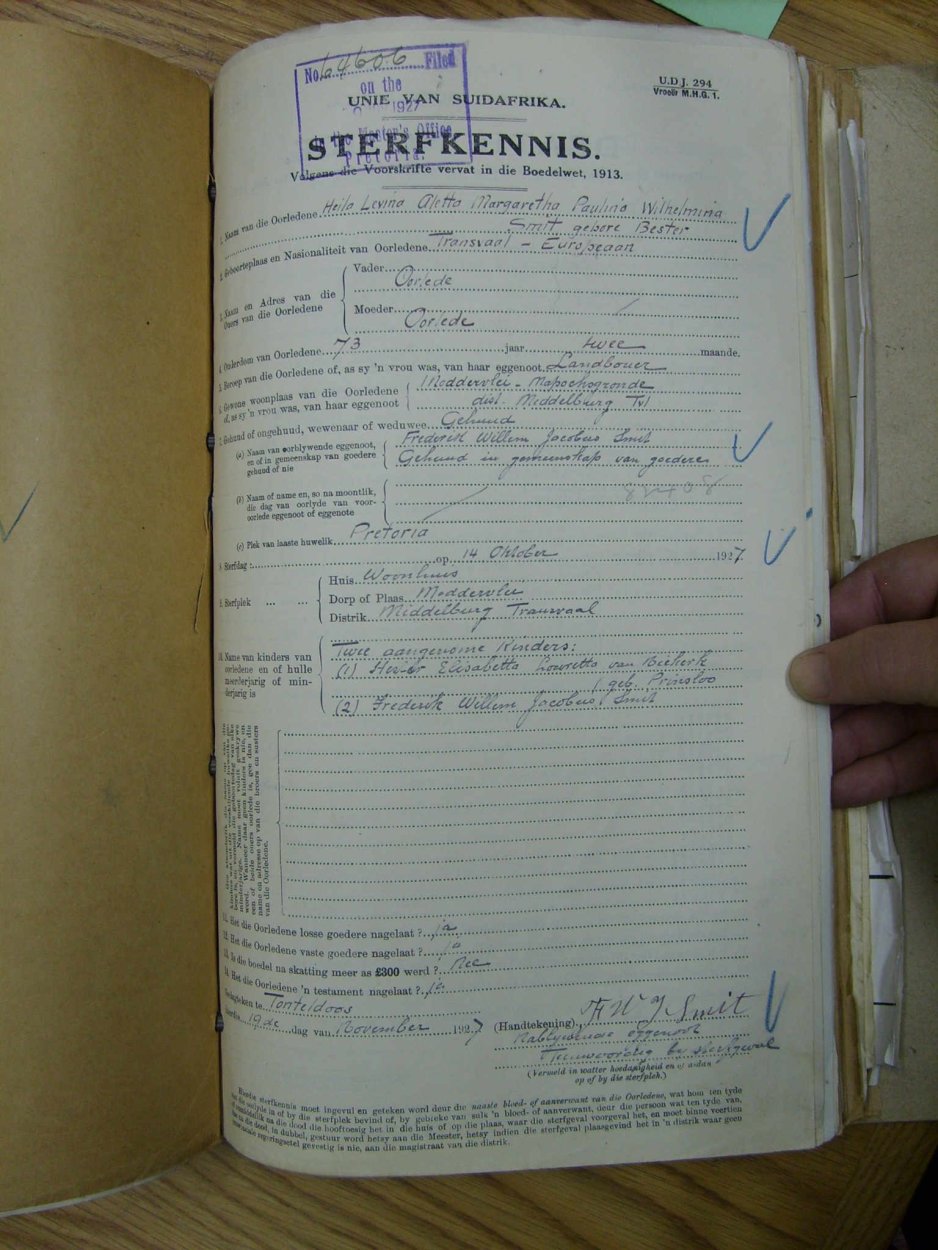 No. 64606 Filed
on the
1927
Master's Office
Pretoria.
U.D.J. 294
Vroeër M.H.G. 1.
UNIE VAN SUIDAFRIKA.
STERFKENNIS.
Volgens die Voorskrifte vervat in die Boedelwet, 1913.
1. Naam van die Oorledene Heila Levina Aletta Margaretha Paulina Wilhelmina
Smit gebore Bester
2. Geboorteplaas en Nasionaliteit van Oorledene. Transvaal - Europeaan
3. Naam en Adres van die Ouers van die Oorledene
Vader Oorlede
Moeder Oorlede
4. Ouderdom van Oorledene 73 jaar twee maande.
5. Beroep van die Oorledene of, as sy 'n vrou was, van haar eggenoot. Landbouer
6. Gewone woonplaas van die Oorledene of, as sy 'n vrou was, van haar eggenoot
Moddervlei - Mapochsgronde
dist. Middelburg Tvl
7. Gehuud of ongehuud, wewenaar of weduwee Gehuud
(a) Naam van oorblywende eggenoot, en of in gemeenskap van goedere gehuud of nie
Frederik Willem Jacobus Smit
Gehuud in gemeenskap van goedere
(b) Naam of name en, so na moontlik, die dag van oorlyde van vooroorlede eggenoot of eggenote
(c) Plek van laaste huwelik Pretoria
8. Sterfdag: op 14 Oktober 1927.
9. Sterfplek
Huis Woonhuis
Dorp of Plaas Moddervlei
Distrik Middelburg Transvaal
10. Name van kinders van oorledene en of hulle meerderjarig of minderjarig is
Twee aangenome Kinders:
(1) Elisabetta Louretta van Niekerk
(geb. Prinsloo
(2) Frederik Willem Jacobus Smit
minderjarige. Name moet voluit geskrywe
word. Wanneer daar geen kinders is nie, en
een of beide ouers oorlede is, gee dan die
name en adresse op van die broers en susters
van die Oorledene.
11. Het die Oorledene losse goedere nagelaat? ja
12. Het die Oorledene vaste goedere nagelaat? ja
13. Is die boedel na skatting meer as £300 werd? Nee
14. Het die Oorledene 'n testament nagelaat? ja
Getegteken te Tonteldoos
hierdie 19de dag van November 1927
(Handtekening) F W J Smit
Nablywende eggenoot
Teenwoordig by sterfgeval
(Vermeld in watter hoedanigheid en of aldan
op of by die sterfplek.)
Hierdie sterfkennis moet ingevul en geteken word deur die naaste bloed- of aanverwant van die Oorledene, wat hom ten tyde
van die oorlyde in of by die sterfplek bevind of, by gebreke van suls 'n bloed- of aanverwant, deur die persoon wat ten tyde van,
of onmiddelik na die dood die hooftoesig het in die huis of op die plaas, waar die sterfgeval voorgeval het, en moet binne veertien
dae na die dood, in dubbel, gestuur word hetsy aan die Meester, hetsy indien die sterfgeval plaasgevind het in 'n distrik waar geen
regeringsetel gevestig is nie, aan die magistraat van die distrik.